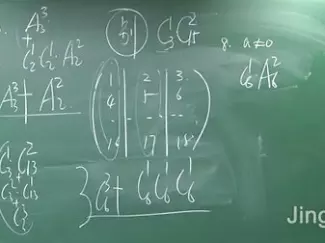 A_3^3
+
C_2^1 C_2^1 A_2^2
A_3^3 + A_2^2
C_3^1 C_{13}^2
C_3^2 C_{13}^1
C_3^3
1 2 3
4 5 6
16 17 18
C_6^3 + C_6^1 C_6^1 C_6^1
8. a≠0
C_6^1 A_6^2
Jing